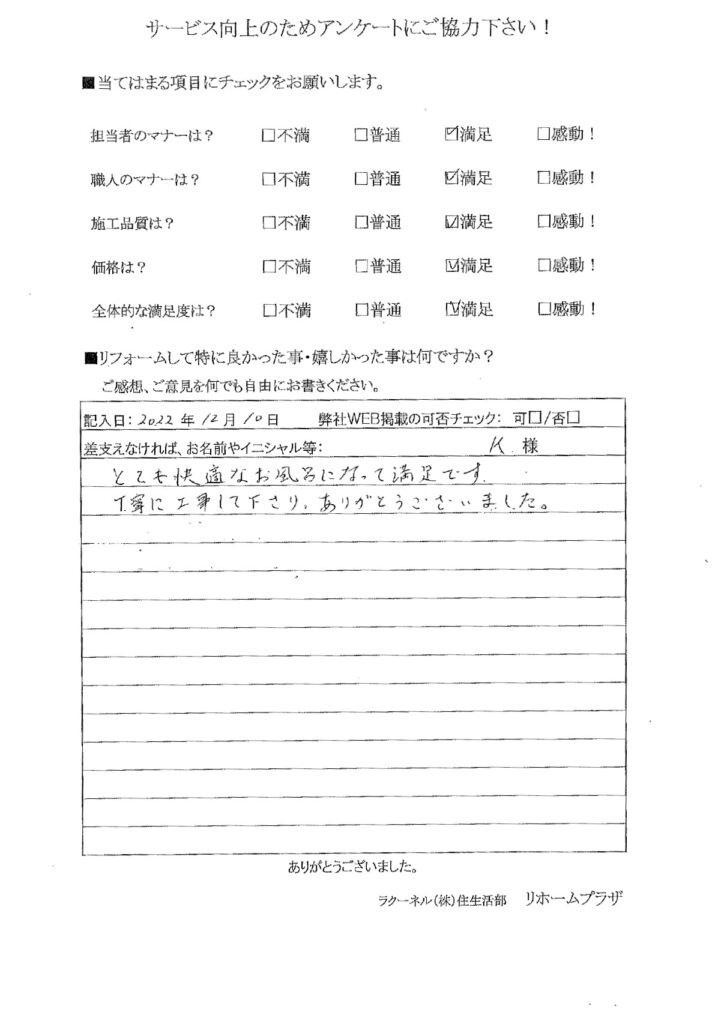 サービス向上のためアンケートにご協力下さい!
■当てはまる項目にチェックをお願いします。
担当者のマナーは? □不満 □普通 ☑満足 □感動!
職人のマナーは? □不満 □普通 ☑満足 □感動!
施工品質は? □不満 □普通 ☑満足 □感動!
価格は? □不満 □普通 ☑満足 □感動!
全体的な満足度は? □不満 □普通 ☑満足 □感動!
■リフォームして特に良かった事・嬉しかった事は何ですか?
ご感想、ご意見を何でも自由にお書きください。
記入日:2022年12月10日 弊社WEB掲載の可否チェック: 可□/否□
差支えなければ、お名前やイニシャル等: K 様
とても快適なお風呂になって満足です
丁寧に工事して下さり、ありがとうございました。
ありがとうございました。
ラクーネル(株)住生活部 リホームプラザ